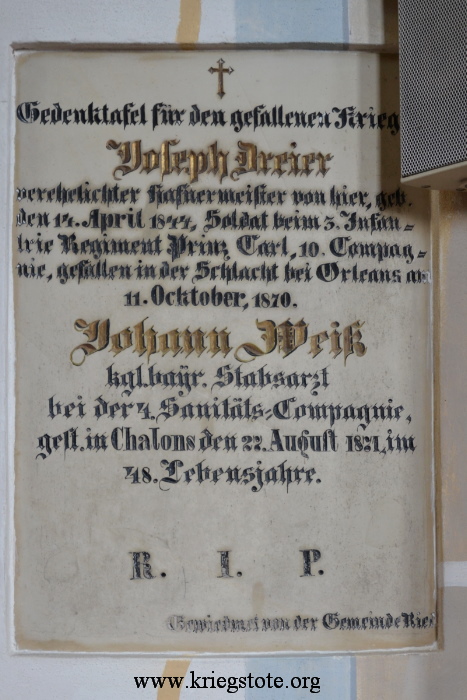 Gedenktafel für den gefallenen Krieg
Joseph Dreier
verehelichter Hafnermeister von hier, geb.
den 14. April 1844, Soldat beim 3. Infan=
trie Regiment Prinz Carl, 10. Compag=
nie, gefallen in der Schlacht bei Orleans am
11. Ocktober, 1870.
Johann Weiß
kgl. bayr. Stabsarzt
bei der 4. Sanitäts=Compagnie,
gest. in Chalons den 22. August 1871, im
48. Lebensjahre.
R. I. P.
Gewiedmet von der Gemeinde
www.kriegstote.org